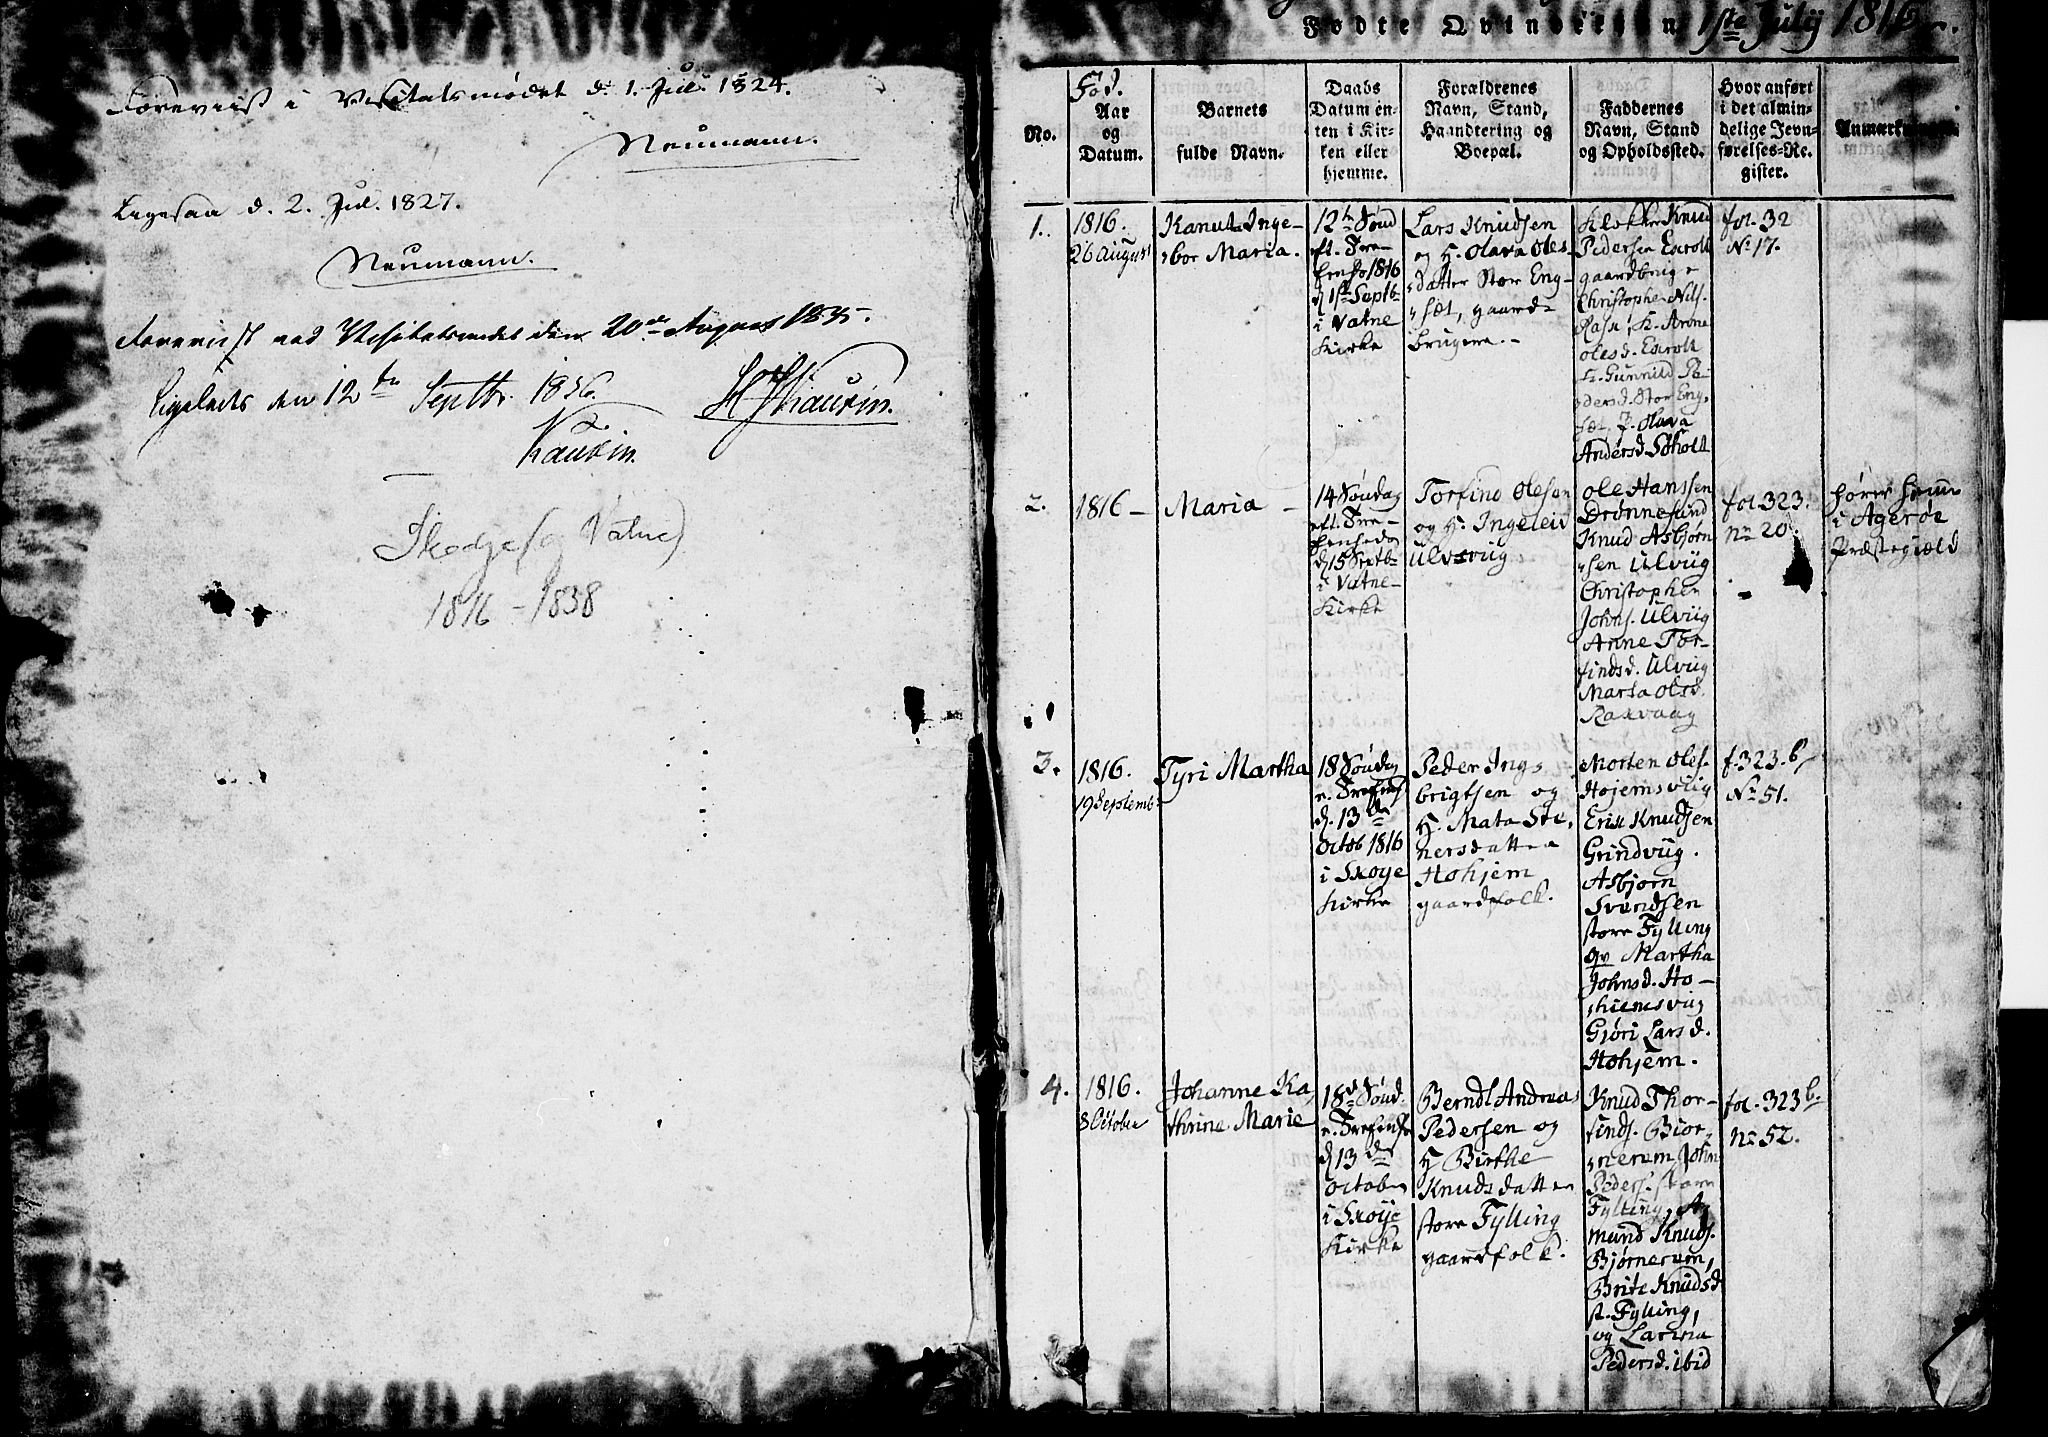 Foreviist i Visitatsmødet d. 1. Jul. 1824.
Neumann.
Ligesaa d. 2. Jul. 1827.
Neumann.
Foreviist ved Visitatsmødet den 20de August 1835.
HJKaurin.
Ligeledes den 12te Septbr. 1836.
Kaurin.
Skodje (og Vatne)
1816 - 1838
Fødte Qvindekiøn 1ste July 1816
No.
Fød.
Aar
og
Datum.
Barnets
fulde Navn.
Daabs
Datum en-
ten i Kir-
ken eller
hjemme.
Forældrenes
Navn, Stand,
Haandtering og
Boepæl.
Faddernes
Navn, Stand
og Opholdssted.
Hvor anført
i det almin-
delige Jevn-
førelses-Re-
gister.
Anmærkninger.
1.
1816.
26 August
Kanuta Inge-
bor Maria.
12te Sønd
eft. Tre-
1816
d 1ste Septb
i Vatne
Kirke
Lars Knudsen
og H. Olava Oles
datter Stor Eng-
sæt, gaard-
brugere.-
Klokker Knud
Pedersen Exrolt
gaardbruger
Christopher Nils.
H. Anne
Olesd. Exrolt
H. Gunnild Pe-
dersd. Stor Eng-
sæt, P. Olava
Andersd Søholt
fol. 32
No 17.
2.
1816 -
Maria -
14 Søndag
eft. Tre-
d 15 Septb
i Vatne-
Kirke
Torfind Olesen
og H. Ingeleiv
Ulvsviig
Ole Hanssen
Drønnesund
Knud Asbjørn
sen Ulviig
Christopher
Johns. Ulviig
Anne Tor-
findsd. Ulviig
Marta Olsd.
Raxvaag
fol. 323.
No 20
hører hiem
i Agerøe
Præstegiæld
3.
1816.
19 Septemb
Tyri Martha
18 Søndag
d. 13de
Octob 1816
i Skoye
Kirke
Peder Ing-
brigtsen og
H. Mata Ste-
nersdatter
Hohjem
gaardfolk.
Morten Oles.
Hojemsviig
Erik Knudsen
Grindviig.
Asbjørn
Svendsen
store Fylling
qv Martha
Johnsd. Ho-
hiemsviig
Gjøri Larsd.
Hohjem.
f. 323. b
No 51.
4.
1816.
8 October
Johanne Ka-
thrine Marie
18de Sønd.
d 13de
October
i Skoye
Kirke
Berndt Andreas
Pedersen og
H Birthe
Knudsdatter
store Fylling
gaardfolk.
Knud Thor-
finds. Biør-
nerem John
Peders. store
Fylling, Ag
mund Knuds.
Bjørnerem,
Brite Knudsd
st. Fylling,
og Lavina
Pedersd. ibid
fol. 323 b.
No 52.